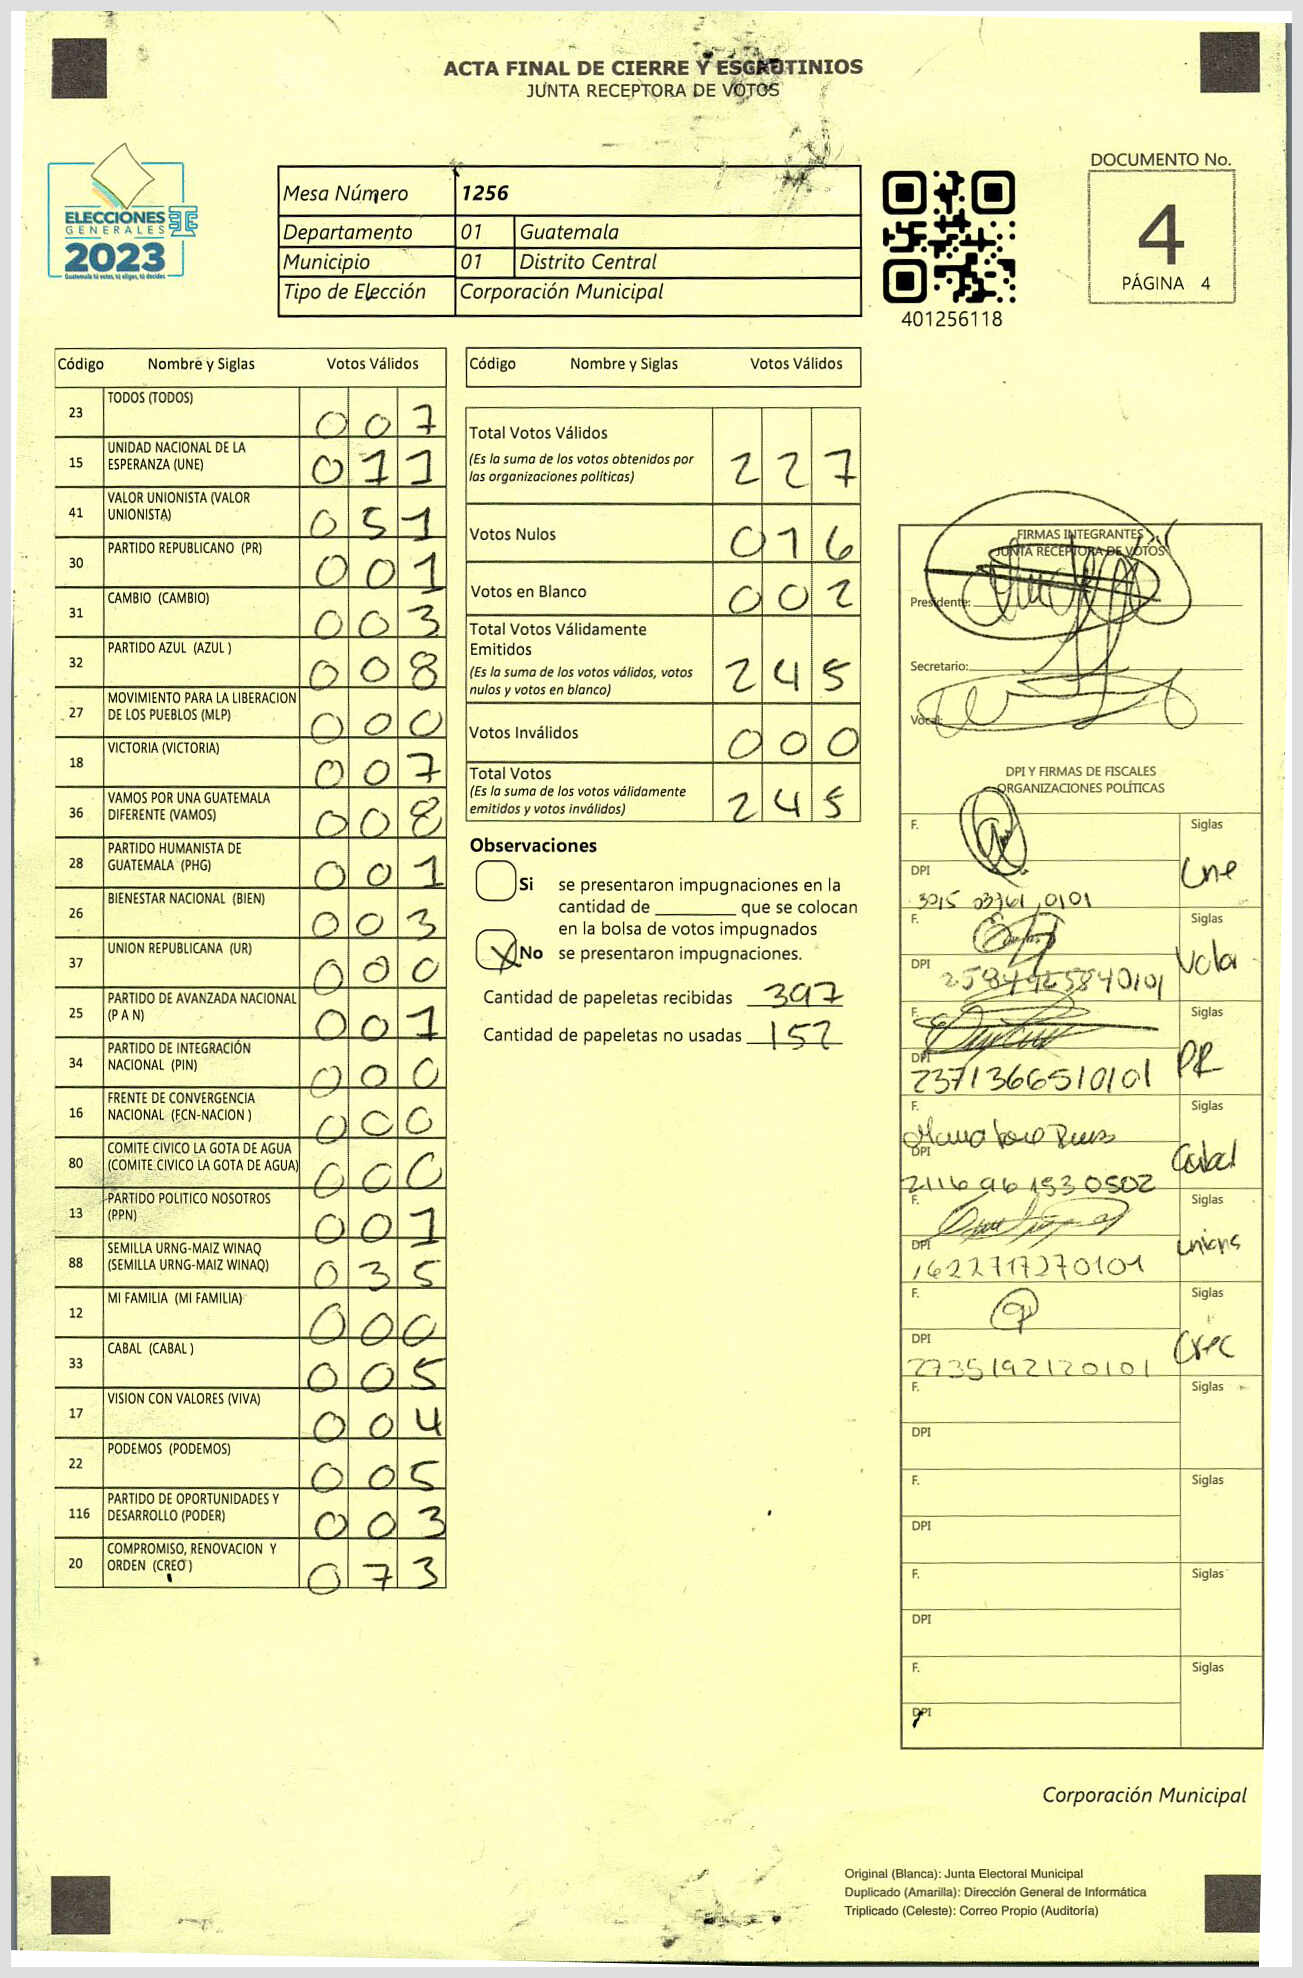 ACTA FINAL DE CIERRE Y ESCRUTINIOS
JUNTA RECEPTORA DE VOTOS
ELECCIONES
GENERALES
2023
Guatemala tú votas, tú eliges, tú decides
Mesa Número 1256
Departamento 01 Guatemala
Municipio 01 Distrito Central
Tipo de Elección Corporación Municipal
401256118
DOCUMENTO No.
4
PÁGINA 4
Código Nombre y Siglas Votos Válidos
23 TODOS (TODOS) 0 0 7
15 UNIDAD NACIONAL DE LA ESPERANZA (UNE) 0 1 1
41 VALOR UNIONISTA (VALOR UNIONISTA) 0 5 1
30 PARTIDO REPUBLICANO (PR) 0 0 1
31 CAMBIO (CAMBIO) 0 0 3
32 PARTIDO AZUL (AZUL ) 0 0 8
27 MOVIMIENTO PARA LA LIBERACION DE LOS PUEBLOS (MLP) 0 0 0
18 VICTORIA (VICTORIA) 0 0 7
36 VAMOS POR UNA GUATEMALA DIFERENTE (VAMOS) 0 0 8
28 PARTIDO HUMANISTA DE GUATEMALA (PHG) 0 0 1
26 BIENESTAR NACIONAL (BIEN) 0 0 3
37 UNION REPUBLICANA (UR) 0 0 0
25 PARTIDO DE AVANZADA NACIONAL (P A N) 0 0 1
34 PARTIDO DE INTEGRACIÓN NACIONAL (PIN) 0 0 0
16 FRENTE DE CONVERGENCIA NACIONAL (FCN-NACION ) 0 0 0
80 COMITE CIVICO LA GOTA DE AGUA (COMITE CIVICO LA GOTA DE AGUA) 0 0 0
13 PARTIDO POLITICO NOSOTROS (PPN) 0 0 1
88 SEMILLA URNG-MAIZ WINAQ (SEMILLA URNG-MAIZ WINAQ) 0 3 5
12 MI FAMILIA (MI FAMILIA) 0 0 0
33 CABAL (CABAL ) 0 0 5
17 VISION CON VALORES (VIVA) 0 0 4
22 PODEMOS (PODEMOS) 0 0 5
116 PARTIDO DE OPORTUNIDADES Y DESARROLLO (PODER) 0 0 3
20 COMPROMISO, RENOVACION Y ORDEN (CREO ) 0 7 3
Código Nombre y Siglas Votos Válidos
Total Votos Válidos
(Es la suma de los votos obtenidos por
las organizaciones políticas) 2 2 7
Votos Nulos 0 1 6
Votos en Blanco 0 0 2
Total Votos Válidamente
Emitidos
(Es la suma de los votos válidos, votos
nulos y votos en blanco) 2 4 5
Votos Inválidos 0 0 0
Total Votos
(Es la suma de los votos válidamente
emitidos y votos inválidos) 2 4 5
Observaciones
Si se presentaron impugnaciones en la
cantidad de ________ que se colocan
en la bolsa de votos impugnados
X No se presentaron impugnaciones.
Cantidad de papeletas recibidas 397
Cantidad de papeletas no usadas 152
FIRMAS INTEGRANTES
JUNTA RECEPTORA DE VOTOS
Presidente:
Secretario:
Vocal:
DPI Y FIRMAS DE FISCALES
ORGANIZACIONES POLÍTICAS
F. Siglas
DPI Une
F. Siglas
DPI Valor
2584925840101
F. Siglas
DPI PR
2371366510101
F. Siglas
DPI Cabal
2116961530502
F. Siglas
DPI
1622717270101
F. Siglas
DPI Creo
2735192120101
F. Siglas
DPI
F. Siglas
DPI
F. Siglas
DPI
F. Siglas
DPI
Corporación Municipal
Original (Blanca): Junta Electoral Municipal
Duplicado (Amarilla): Dirección General de Informática
Triplicado (Celeste): Correo Propio (Auditoría)